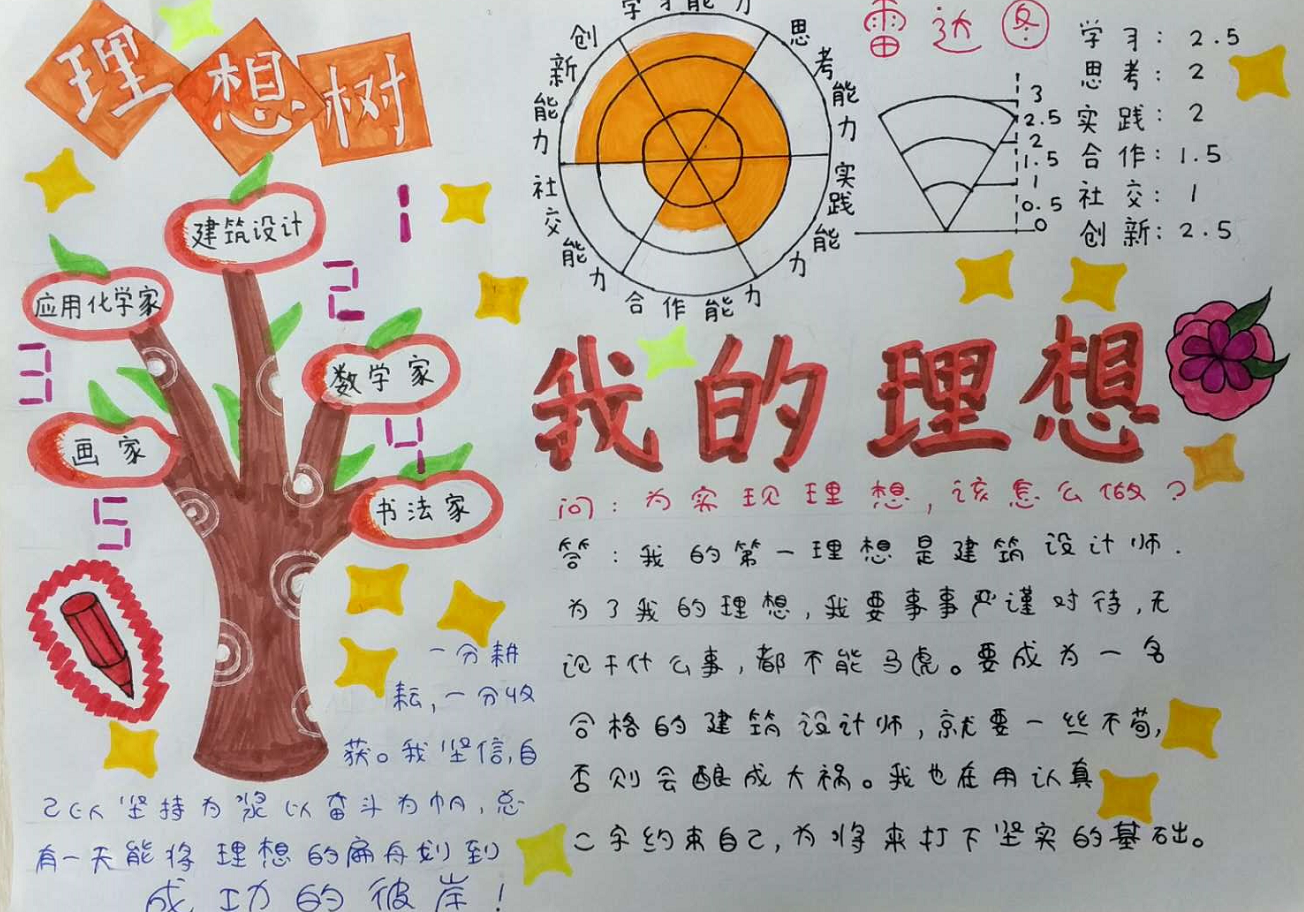 理想树
建筑设计
1
应用化学家
2
数学家
3
画家
4
书法家
5
一分耕
耘,一分收
获。我坚信,自
己以坚持为浆以奋斗为帆,总
有一天能将理想的扁舟划到
成功的彼岸!
学习能力
思考能力
实践能力
合作能力
社交能力
创新能力
雷达图
3
2.5
2
1.5
1
0.5
0
学习:2.5
思考:2
实践:2
合作:1.5
社交:1
创新:2.5
我的理想
问:为实现理想,该怎么做?
答:我的第一理想是建筑设计师.
为了我的理想,我要事事严谨对待,无
论干什么事,都不能马虎。要成为一名
合格的建筑设计师,就要一丝不苟,
否则会酿成大祸。我也在用认真
二字约束自己,为将来打下坚实的基础。